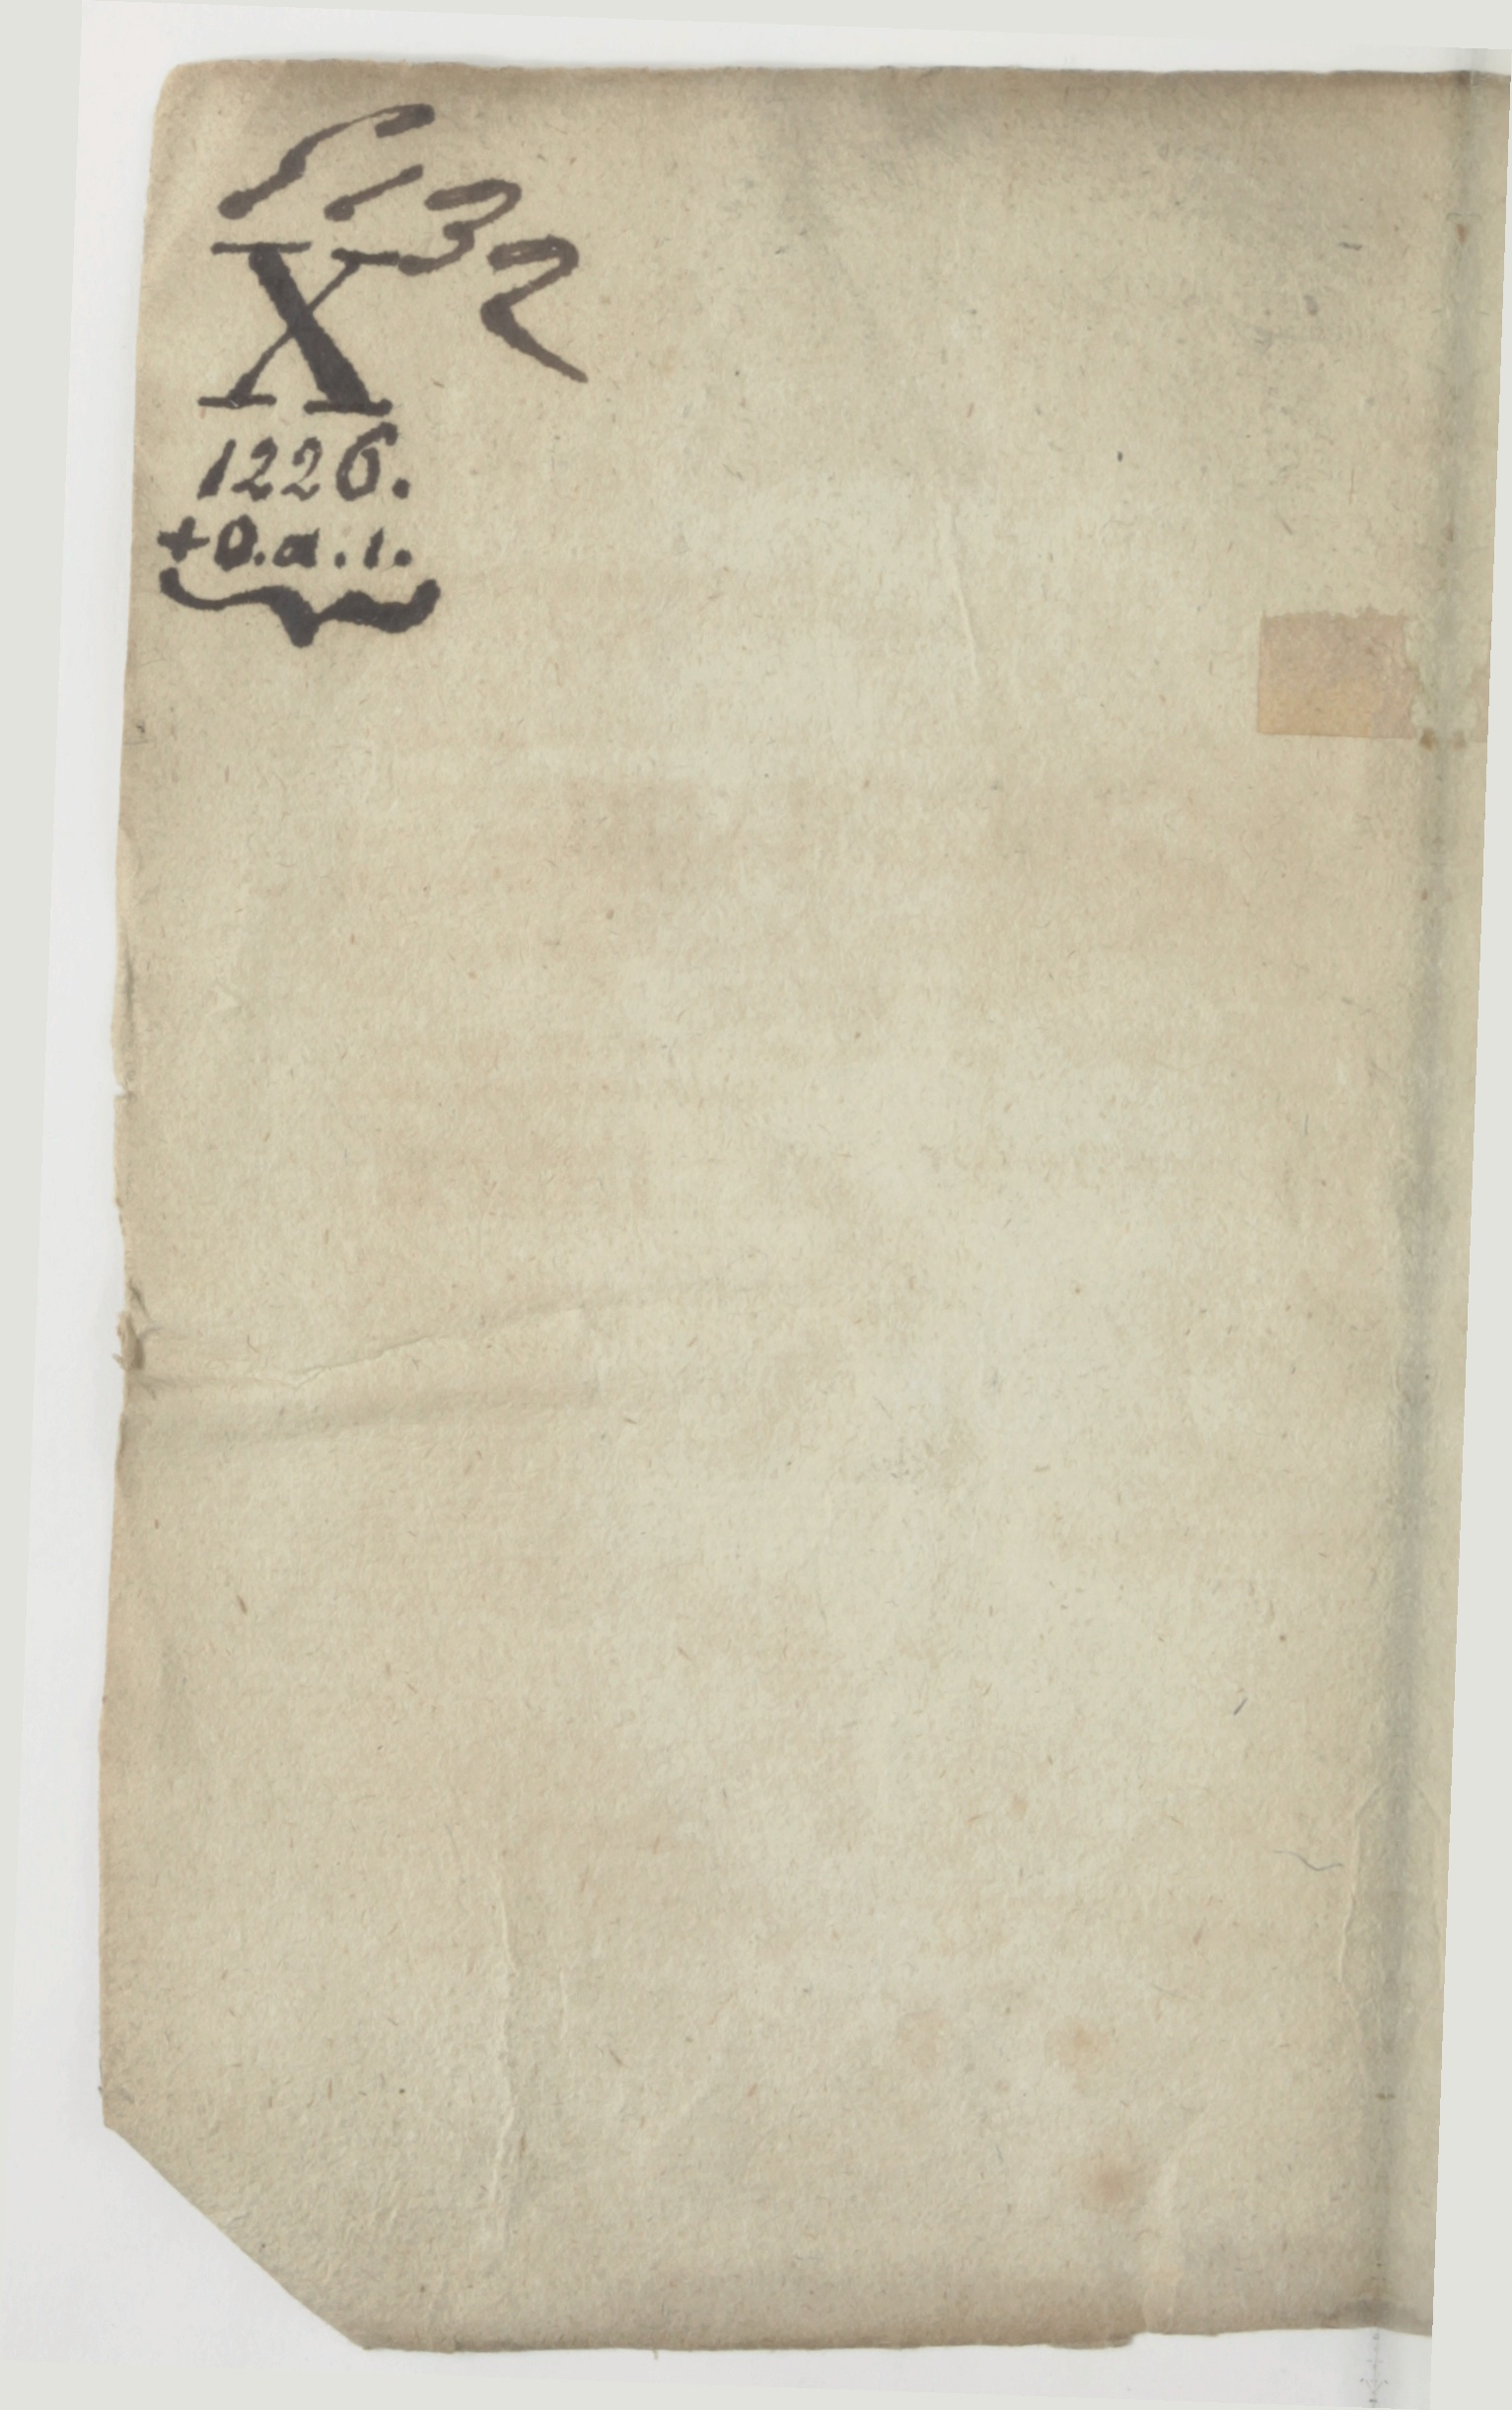 1132
X
1226.
+0.a.1.